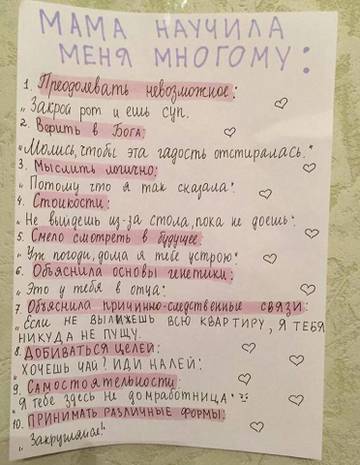 МАМА НАУЧИЛА
МЕНЯ МНОГОМУ:
1. Преодолевать невозможное:
„Закрой рот и ешь суп.
2. Верить в Бога:
„Молись, чтобы эта гадость отстиралась."
3. Мыслить логично:
„Потому что я так сказала".
4. Стойкости:
„Не выйдешь из-за стола, пока не доешь".
5. Смело смотреть в будущее
„Уж погоди, дома я тебе устрою".
6. Объяснила основы генетики:
„Это у тебя в отца".
7. Объяснила причинно-следственные связи:
„ЕСЛИ НЕ ВЫЛИЖЕШЬ ВСЮ КВАРТИРУ, Я ТЕБЯ
НИКУДА НЕ ПУЩУ.
8. ДОБИВАТЬСЯ ЦЕЛЕЙ:
„ХОЧЕШЬ ЧАЙ? ИДИ НАЛЕЙ!
9. Самостоятельности:
„Я тебе здесь не домработница".
10. ПРИНИМАТЬ РАЗЛИЧНЫЕ ФОРМЫ:
„Закругляйся!"